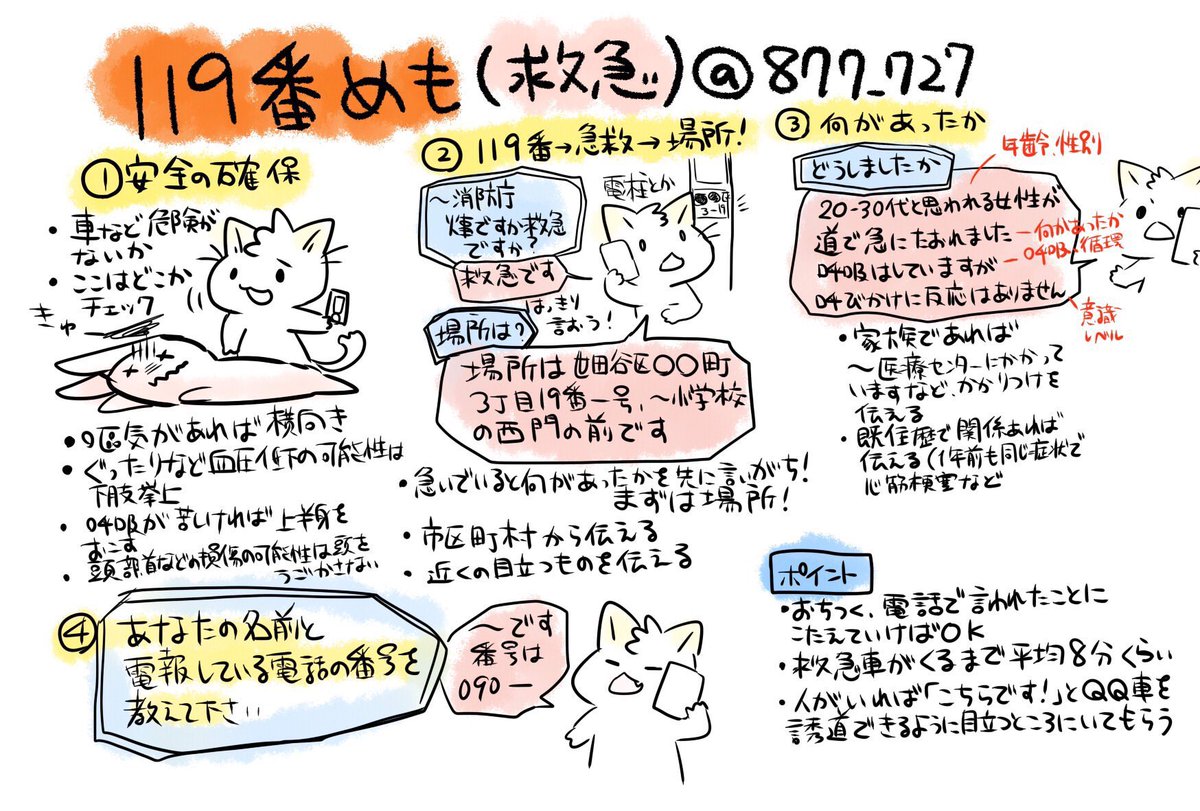 119番めも(救急)@877_727
①安全の確保
・車など危険が
ないか
・ここはどこか
チェック
きゅー
・嘔気があれば横向き
・ぐったりなど血圧低下の可能性は
下肢挙上
・呼吸が苦しければ上半身を
おこす
・頭部首などの損傷の可能性は頭を
うごかさない
②119番→急救→場所!
〜消防庁
火事ですか救急
ですか?
救急です
電柱とか
3-19
はっきり
言おう!
場所は?
場所は世田谷区〇〇町
3丁目19番一号、〜小学校
の西門の前です
・急いでいると何があったかを先に言いがち!
まずは場所!
・市区町村から伝える
・近くの目立つものを伝える
③何があったか
どうしましたか
年齢、性別
20-30代と思われる女性が
道で急にたおれました
呼吸はしていますが
呼びかけに反応はありません
何かあったか
呼吸、循環
意識
レベル
・家族であれば
〜医療センターにかかって
いますなど、かかりつけを
伝える
・既往歴で関係あれば
伝える(1年前も同じ症状で
心筋梗塞など
④あなたの名前と
電報している電話の番号を
教えて下さい
〜です
番号は
090ー
ポイント
・おちつく、電話で言われたことに
こたえていけばOK
・救急車がくるまで平均8分くらい
・人がいれば「こちらです!」とQQ車を
誘導できるように目立つところにいてもらう